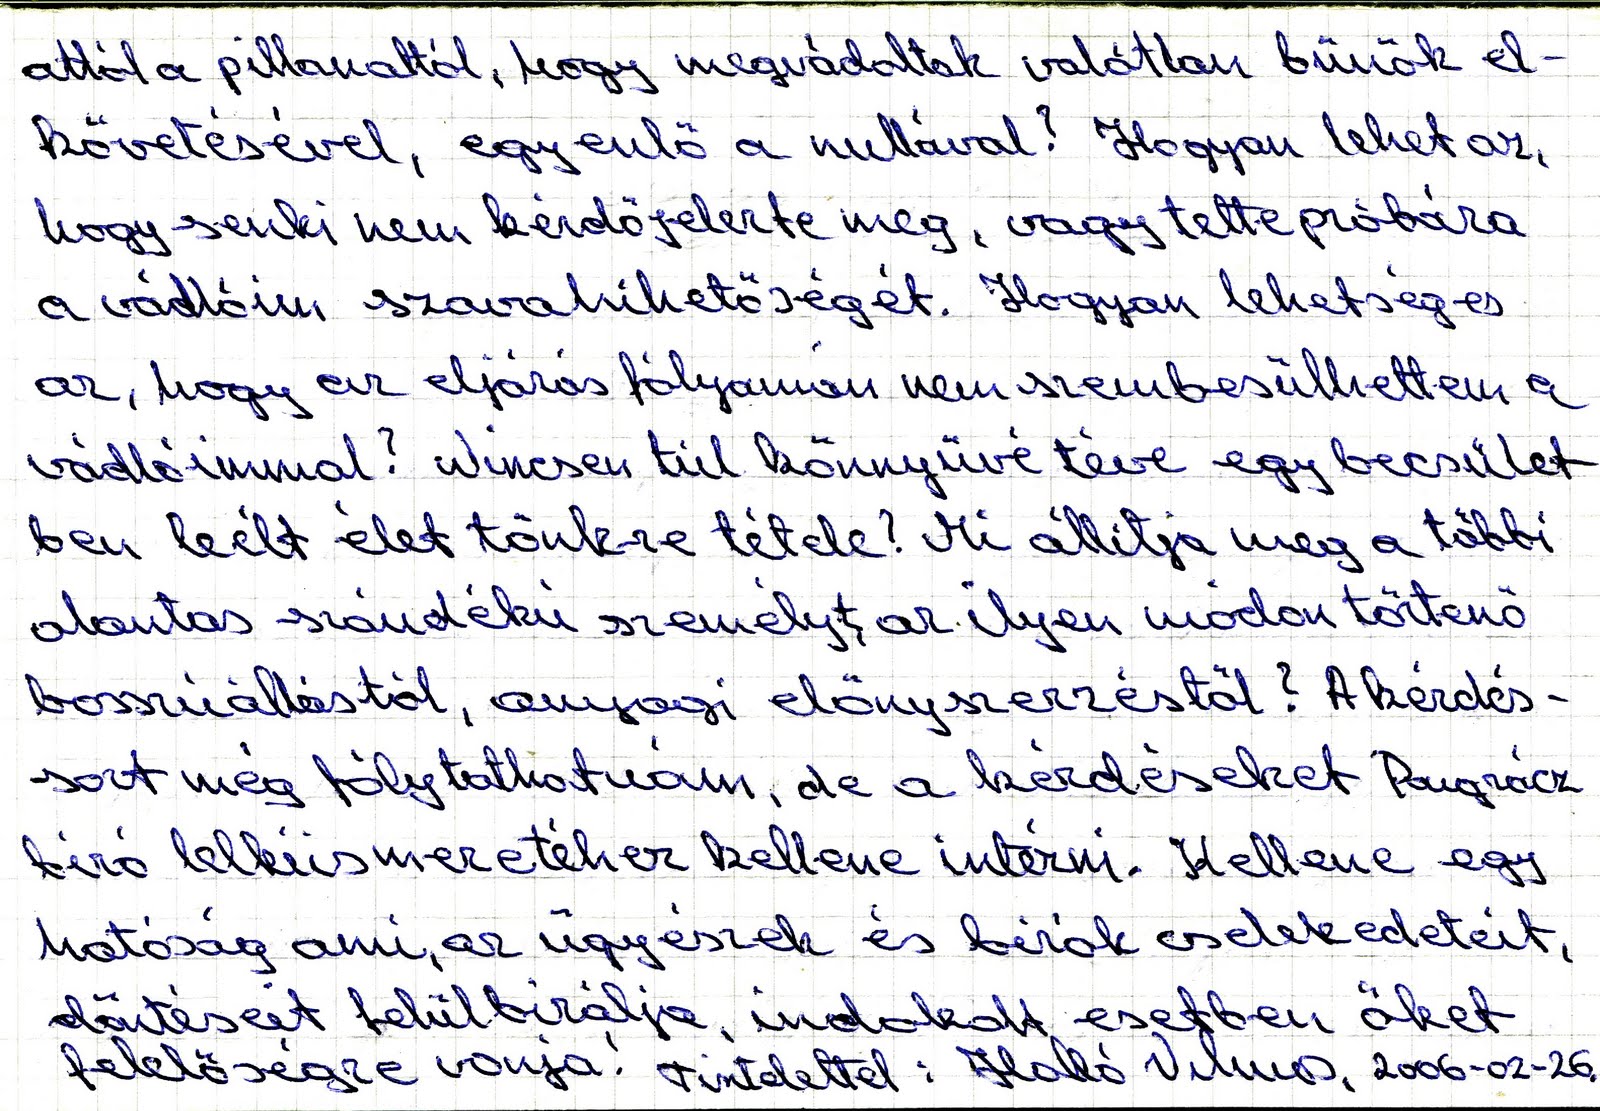 attól a pillanattól, hogy megvádoltak valótlan bűnök el-
követésével, egyenlő a nullával? Hogyan lehet az,
hogy senki nem kérdőjelezte meg, vagy tette próbára
a vádlóim szavahihetőségét. Hogyan lehetséges
az, hogy az eljárás fólyamán nem szembesülhettem a
vádlóimmal? Nincsen túl könnyűvé téve egy becsület
ben leélt élet tönkre tétele? Mi állítja meg a többi
alantas szándékú személyt, az ilyen módon történő
bosszúállástól, anyagi előnyszerzéstől? A kérdés-
sort még fólytathatnám, de a kérdéseket Pongrácz
bíró lelkiismeretéhez kellene intézni. Kellene egy
hatóság ami, az ügyészek és bírók cselekedeteit,
döntéseit felülbirálja, indokolt esetben őket
felelőségre vonja! Tisztelettel: Holló Vilmos, 2006-02-26.